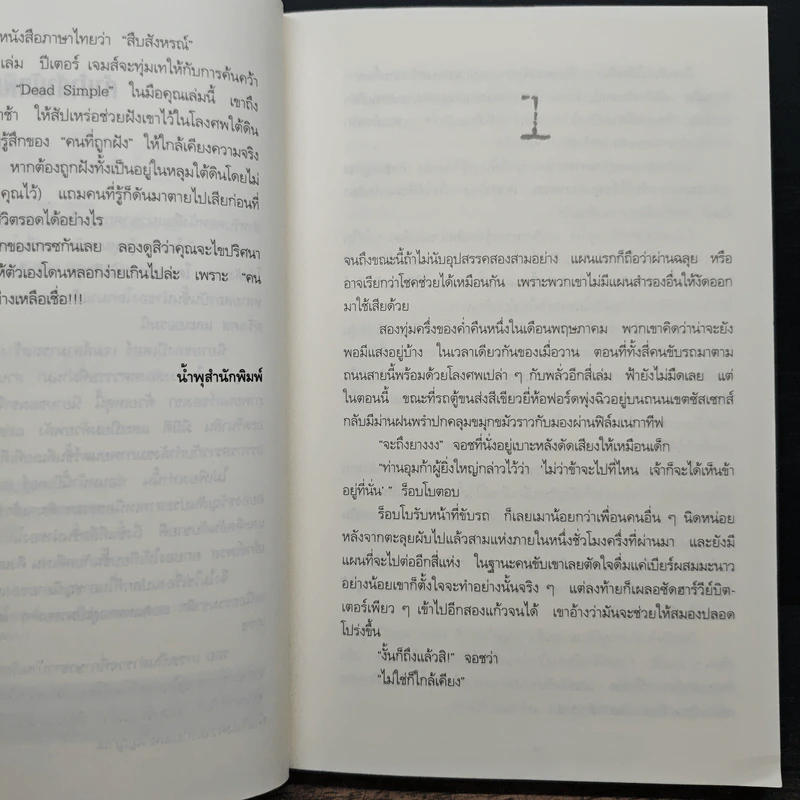 หนังสือภาษาไทยว่า “สืบสังหรณ์”
เล่ม ปีเตอร์ เจมส์จะทุ่มเทให้กับการค้นคว้า
“Dead Simple” ในมือคุณเล่มนี้ เขาถึง
ให้สัปเหร่อช่วยฝังเขาไว้ในโลงศพใต้ดิน
รู้สึกของ “คนที่ถูกฝัง” ให้ใกล้เคียงความจริง
หากต้องถูกฝังทั้งเป็นอยู่ในหลุมใต้ดินโดยไม่
คุณไว้) แถมคนที่รู้ก็ดันมาตายไปเสียก่อนที่
ชีวิตรอดได้อย่างไร
ของเกรซกันเลย ลองดูสิว่าคุณจะไขปริศนา
ให้ตัวเองโดนหลอกง่ายเกินไปล่ะ เพราะ “คน
อย่างเหลือเชื่อ!!!
น้ำพุสำนักพิมพ์
1
จนถึงขณะนี้ถ้าไม่นับอุปสรรคสองสามอย่าง แผนแรกก็ถือว่าผ่านฉลุย หรือ
อาจเรียกว่าโชคช่วยได้เหมือนกัน เพราะพวกเขาไม่มีแผนสำรองอื่นให้งัดออก
มาใช้เสียด้วย
สองทุ่มครึ่งของค่ำคืนหนึ่งในเดือนพฤษภาคม พวกเขาคิดว่าน่าจะยัง
พอมีแสงอยู่บ้าง ในเวลาเดียวกันของเมื่อวาน ตอนที่ทั้งสี่คนขับรถมาตาม
ถนนสายนี้พร้อมด้วยโลงศพเปล่า ๆ กับพลั่วอีกสี่เล่ม ฟ้ายังไม่มืดเลย แต่
ในตอนนี้ ขณะที่รถตู้ขนส่งสีเขียวยี่ห้อฟอร์ดพุ่งฉิวอยู่บนถนนเขตซัสเซกส์
กลับมีม่านฝนพรำปกคลุมขมุกขมัวราวกับมองผ่านฟิล์มเนกาทีฟ
“จะถึงยางงง” จอชที่นั่งอยู่เบาะหลังดัดเสียงให้เหมือนเด็ก
“ท่านอุมก้าผู้ยิ่งใหญ่กล่าวไว้ว่า ‘ไม่ว่าข้าจะไปที่ไหน เจ้าก็จะได้เห็นข้า
อยู่ที่นั่น’ ” ร็อบโบตอบ
ร็อบโบรับหน้าที่ขับรถ ก็เลยเมาน้อยกว่าเพื่อนคนอื่น ๆ นิดหน่อย
หลังจากตะลุยผับไปแล้วสามแห่งภายในหนึ่งชั่วโมงครึ่งที่ผ่านมา และยังมี
แผนที่จะไปต่ออีกสี่แห่ง ในฐานะคนขับเขาเลยตัดใจดื่มแค่เบียร์ผสมมะนาว
อย่างน้อยเขาก็ตั้งใจจะทำอย่างนั้นจริง ๆ แต่ลงท้ายก็เผลอซัดฮาร์วีย์บิต-
เตอร์เพียว ๆ เข้าไปอีกสองแก้วจนได้ เขาอ้างว่ามันจะช่วยให้สมองปลอด
โปร่งขึ้น
“งั้นก็ถึงแล้วสิ!” จอชว่า
“ไม่ใช่ก็ใกล้เคียง”